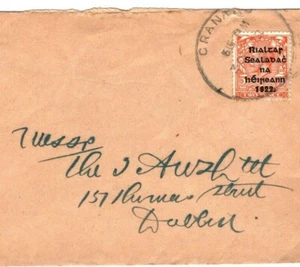 CRAN
Rialtas
Sealadac
na
hÉireann
1922.
Messrs
The
157 Thomas Street
Dublin